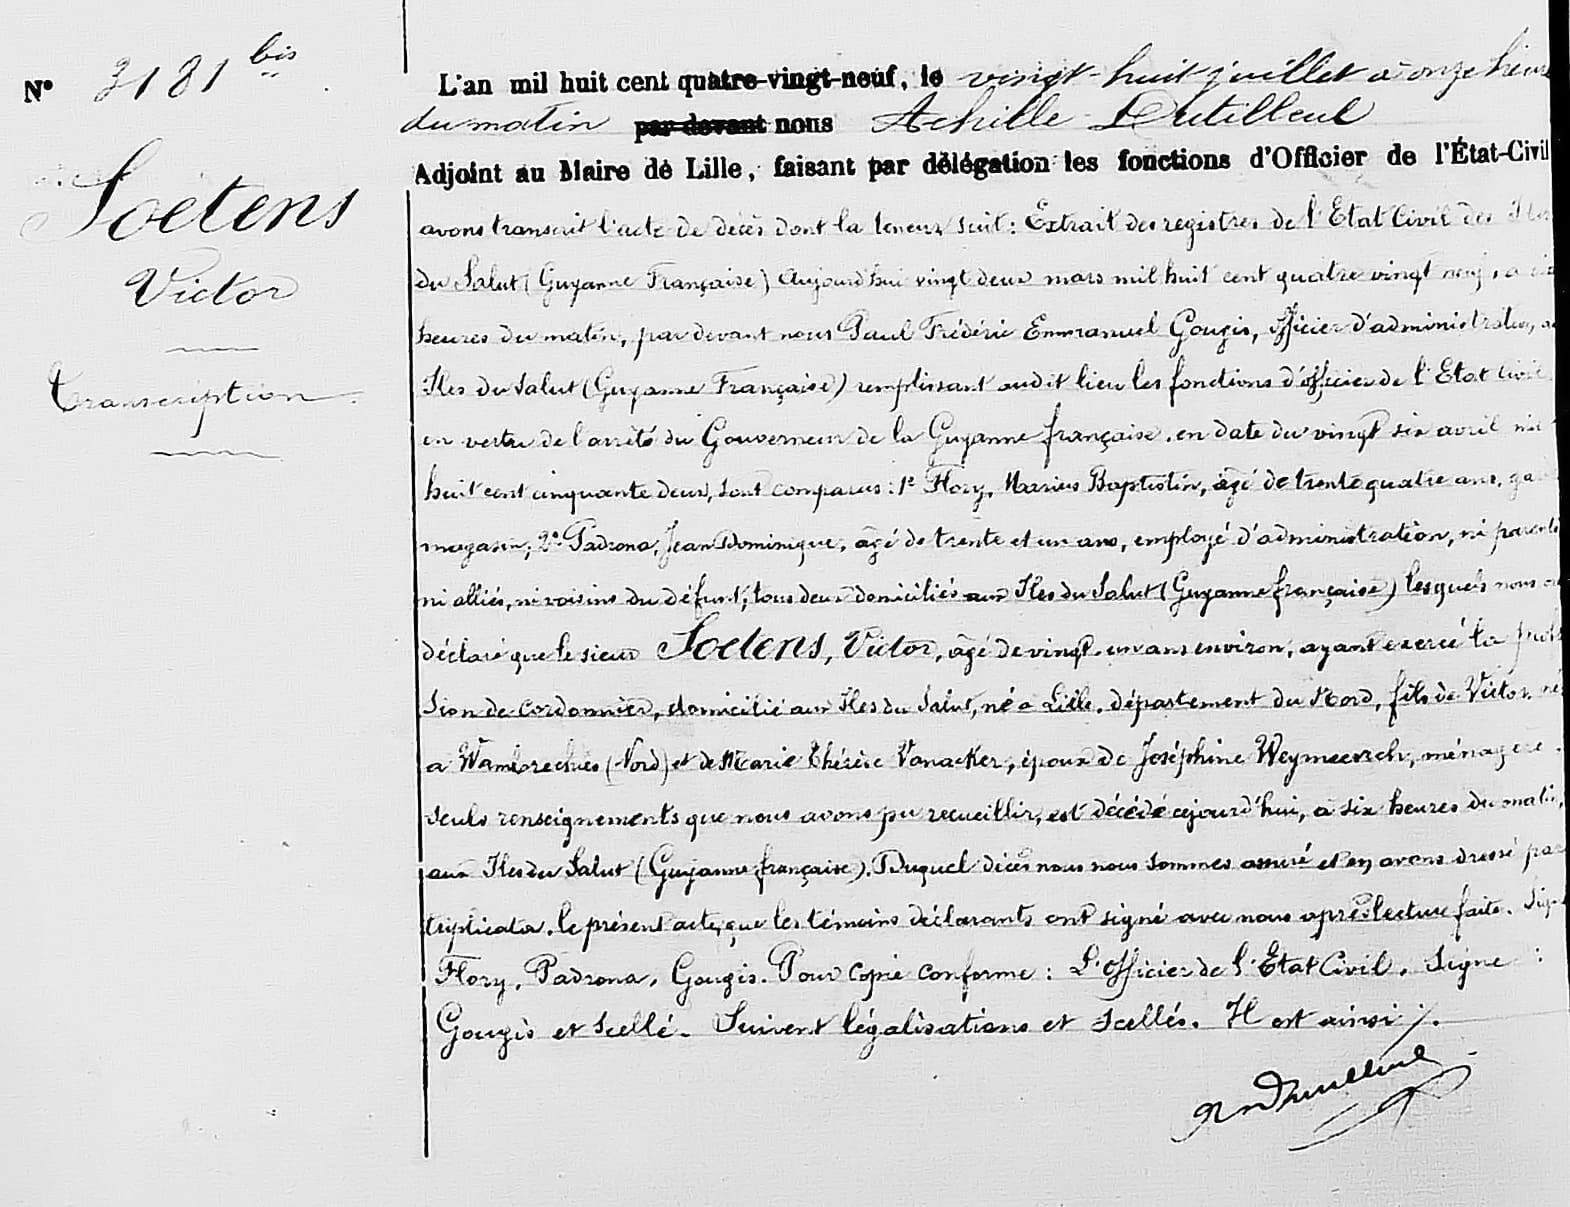 N° 3181 bis
L'an mil huit cent quatre-vingt-neuf, le vingt-huit juillet à onze heures
du matin par devant nous Achille Dutilleul
Adjoint au Maire de Lille, faisant par délégation les fonctions d'Officier de l'État-Civil
Soetens
Victor
Transcription.
avons transcrit l'acte de décès dont la teneur suit : Extrait des registres de l'Etat Civil des Iles
du Salut (Guyanne Française) Aujourd'hui vingt deux mars mil huit cent quatre vingt neuf, à
heures du matin, par devant nous Paul Frédéric Emmanuel Gougis, officier d'administration,
Iles du Salut (Guyanne Française) remplissant audit lieu les fonctions d'officier de l'Etat Civil
en vertu de l'arrêté du Gouverneur de la Guyanne française, en date du vingt six avril mil
huit cent cinquante deux, sont comparus : 1° Flory, Marius Baptistin, âgé de trente quatre ans,
magasin, 2° Padrona, Jean Dominique, âgé de trente et un ans, employé d'administration, ni parents
ni alliés, ni voisins du défunt, tous deux domiciliés aux Iles du Salut (Guyanne française) lesquels nous
déclaré que le sieur Soetens, Victor, âgé de vingt un ans environ, ayant exercé la profes
sion de cordonnier, domicilié aux Iles du Salut, né à Lille, département du Nord, fils de Victor, né
à Wambrechies (Nord) et de Marie Thérèse Vanacker, époux de Joséphine Weymeersch, ménagère.
seuls renseignements que nous avons pu recueillir, est décédé cejourd'hui, à six heures du matin,
aux Iles du Salut (Guyanne française). Duquel décès nous nous sommes assuré et en avons dressé par
triplicata, le présent acte, que les témoins déclarants ont signé avec nous après lecture faite. Signé
Flory, Padrona, Gougis. Pour copie conforme : L'officier de l'Etat Civil. Signé :
Gougis et scellé. Suivent légalisations et scellés. Il est ainsi /.